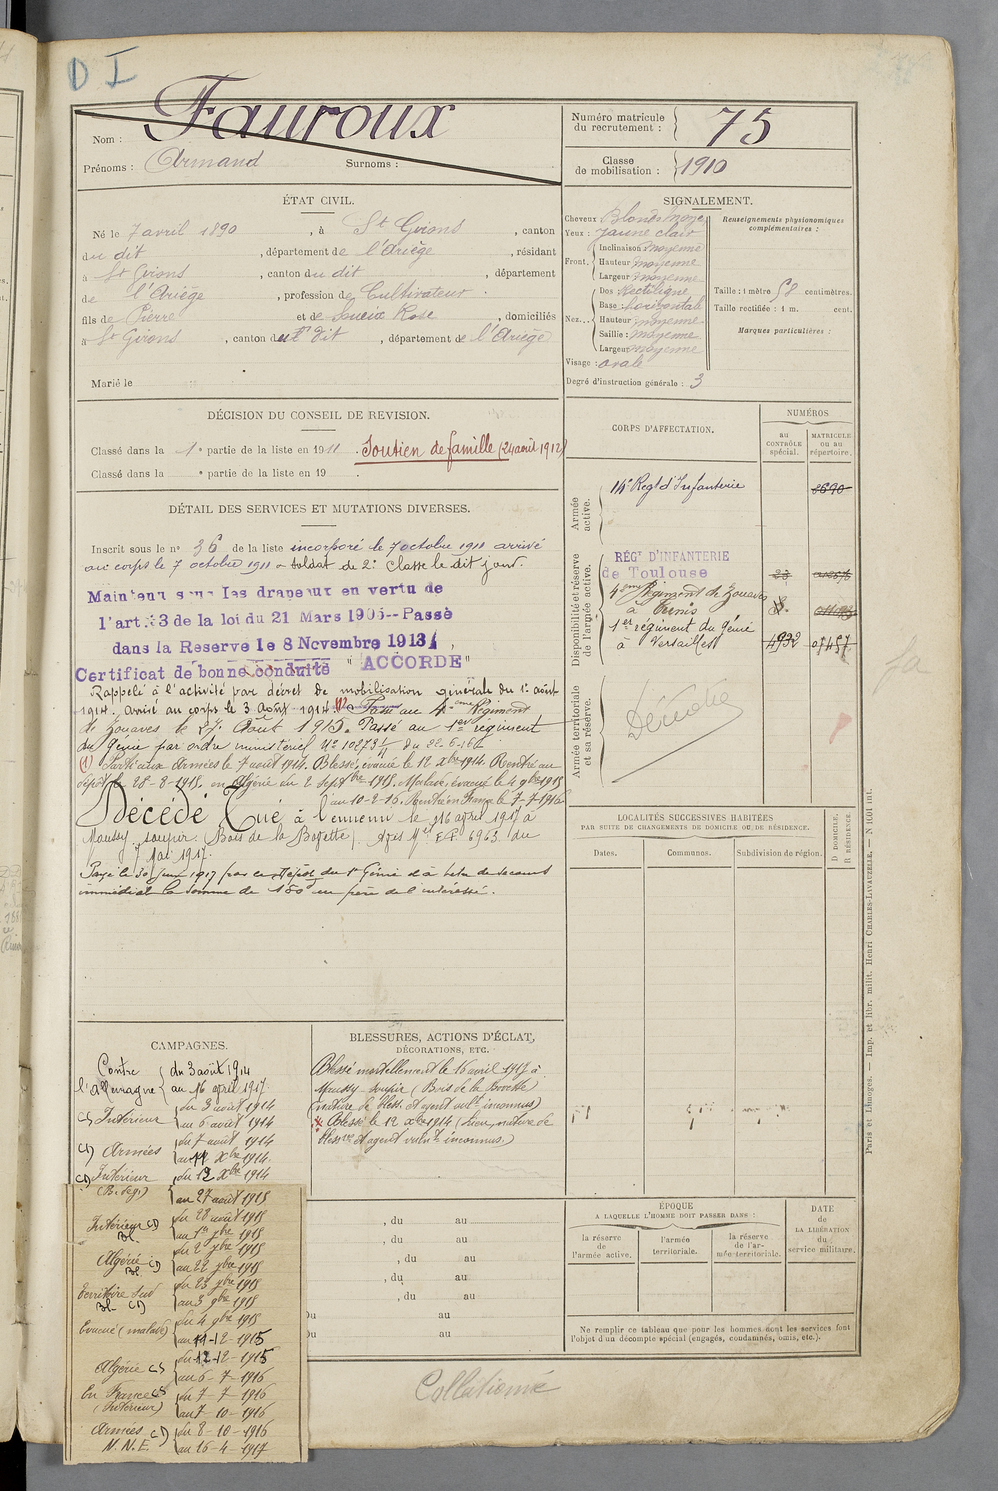 D I
Nom : Fauroux
Prénoms : Armand Surnoms :
Numéro matricule
du recrutement : 75
Classe
de mobilisation : 1910
ÉTAT CIVIL.
Né le 7 avril 1890, à St Girons, canton
du dit, département de l'Ariège, résidant
à St Girons, canton du dit, département
de l'Ariège, profession de Cultivateur
fils de Pierre et de Soueix Rose, domiciliés
à St Girons, canton du dit, département de l'Ariège
Marié le
SIGNALEMENT.
Cheveux : Blonds moye
Yeux : jaune clair
Front. Inclinaison moyenne
Hauteur moyenne
Largeur moyenne
Nez... Dos Rectiligne
Base : horizontale
Hauteur moyenne
Saillie : moyenne
Largeur moyenne
Visage : ovale
Degré d'instruction générale : 3
Renseignements physionomiques
complémentaires :
Taille : 1 mètre 58 centimètres.
Taille rectifiée : 1 m. cent.
Marques particulières :
DÉCISION DU CONSEIL DE REVISION.
Classé dans la 1e partie de la liste en 1911. Soutien de famille (24 août 1912)
Classé dans la e partie de la liste en 19
DÉTAIL DES SERVICES ET MUTATIONS DIVERSES.
Inscrit sous le no 36 de la liste incorporé le 7 octobre 1911 arrivé
au corps le 7 octobre 1911 soldat de 2e classe le dit jour.
Maintenu sous les drapeaux en vertu de
l'art. 33 de la loi du 21 Mars 1905--Passé
dans la Reserve le 8 Novembre 1913
Certificat de bonne conduite "ACCORDÉ"
Rappelé à l'activité par décret de mobilisation générale du 1er août
1914. Arrivé au corps le 3 août 1914. (1) Passé au 4eme Régiment
de Zouaves le 27 Août 1915. Passé au 1er régiment
du Génie par ordre ministériel No 10273 du 22-6-16
(1) Parti aux Armées le 7 août 1914. Blessé, évacué le 12 Xbre 1914. Rentré au
dépôt le 28-8-1915. en Algérie du 2 Septbre 1915. Malade, évacué le 4 9bre 1915
au 10-2-16. Rentré en France le 7-7-1916
Décédé Tué à l'ennemi le 16 avril 1917 à
Moussy soupir (Bois de la Bovette). Avis Mel 6963 du
7 Mai 1917.
Payé le 30 juin 1917 par le Dépôt du 1er Génie et à titre de secours
immédiat la somme de 150 au père de l'intéressé.
CORPS D'AFFECTATION.
NUMÉROS
AU
CONTRÔLE
spécial.
MATRICULE
OU AU
répertoire.
Armée
active.
14e Regt d'Infanterie 8690
Disponibilité et réserve
de l'armée active.
RÉGt D'INFANTERIE
de Toulouse
4eme Régiment de Zouaves
à Tunis
1er régiment du Génie
à Versailles 4932
Armée territoriale
et sa réserve.
LOCALITÉS SUCCESSIVES HABITÉES
PAR SUITE DE CHANGEMENTS DE DOMICILE OU DE RÉSIDENCE.
Dates. Communes. Subdivision de région.
D. DOMICILE.
R. RÉSIDENCE.
CAMPAGNES.
Contre l'Allemagne du 3 août 1914
au 16 avril 1917.
C. Intérieur du 3 août 1914
au 6 août 1914
C. Armées du 7 août 1914
au 11 Xbre 1914.
C. Intérieur du 12 Xbre 1914
au 27 août 1915
Intérieur du 28 août 1915
au 1er 7bre 1915
Algérie du 2 7bre 1915
au 22 7bre 1915
Territoire Sud du 23 7bre 1915
au 3 9bre 1915
Évacué (malade) du 4 9bre 1915
au 11-12-1915
Algérie du 12-12-1915
au 6-7-1916
En France du 7-7-1916
(Intérieur) au 7-10-1916
Armées du 8-10-1916
N. N. E. au 16-4-1917
BLESSURES, ACTIONS D'ÉCLAT,
DÉCORATIONS, ETC.
Blessé mortellement le 16 avril 1917 à
Moussy Soupir (Bois de la Bovette)
(nature de bless. et agent vult inconnus)
Blessé le 12 Xbre 1914 (Lieu, nature de
blessure et agent vulnt inconnus.)
, du au
, du au
, du au
, du au
, du au
Du au
Du au
ÉPOQUE
A LAQUELLE L'HOMME DOIT PASSER DANS :
la réserve
de
l'armée active.
l'armée
territoriale.
la réserve
de l'ar-
mée territoriale.
DATE
de
LA LIBÉRATION
du
service militaire.
Ne remplir ce tableau que pour les hommes dont les services font
l'objet d'un décompte spécial (engagés, condamnés, omis, etc.).
Collationné
Paris et Limoges. — Imp. et libr. milit. Henri CHARLES-LAVAUZELLE. — N 1601 int.